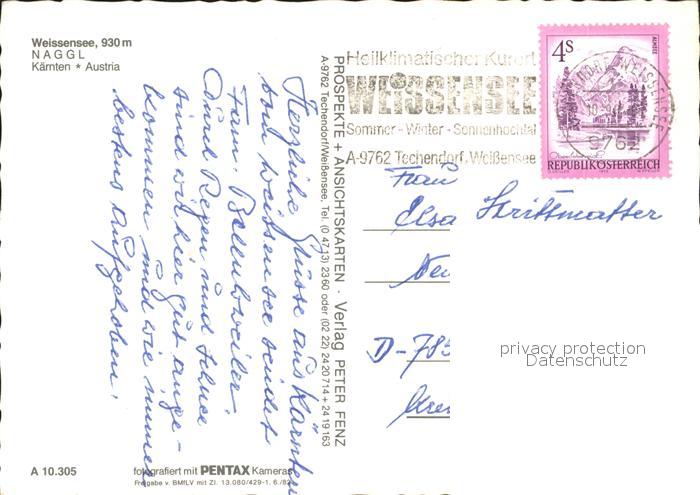 Weissensee, 930 m
NAGGL
Kärnten * Austria
Herzliche Grüsse aus Kärnten
vom Weissensee sendet
Fam.
Ohne Regen und Schnee
sind wir hier gut ange-
kommen und wie immer
bestens aufgehoben.
A 10.305
fotografiert mit PENTAX Kameras
Freigabe v. BMfLV mit Zl. 13.080/429-1. 6./82
PROSPEKTE + ANSICHTSKARTEN · Verlag PETER FENZ
A-9762 Techendorf/Weißensee, Tel. (0 47 13) 23 60 oder (02 22) 24 20 714 + 24 19 163
Heilklimatischer Kurort
WEISSENSEE
Sommer - Winter - Sonnenhochtal
A-9762 Techendorf, Weißensee
4S
ALMSEE
WEISSENSEE
9762
REPUBLIK ÖSTERREICH
Frau
Elsa Strittmatter
D-785
privacy protection
Datenschutz